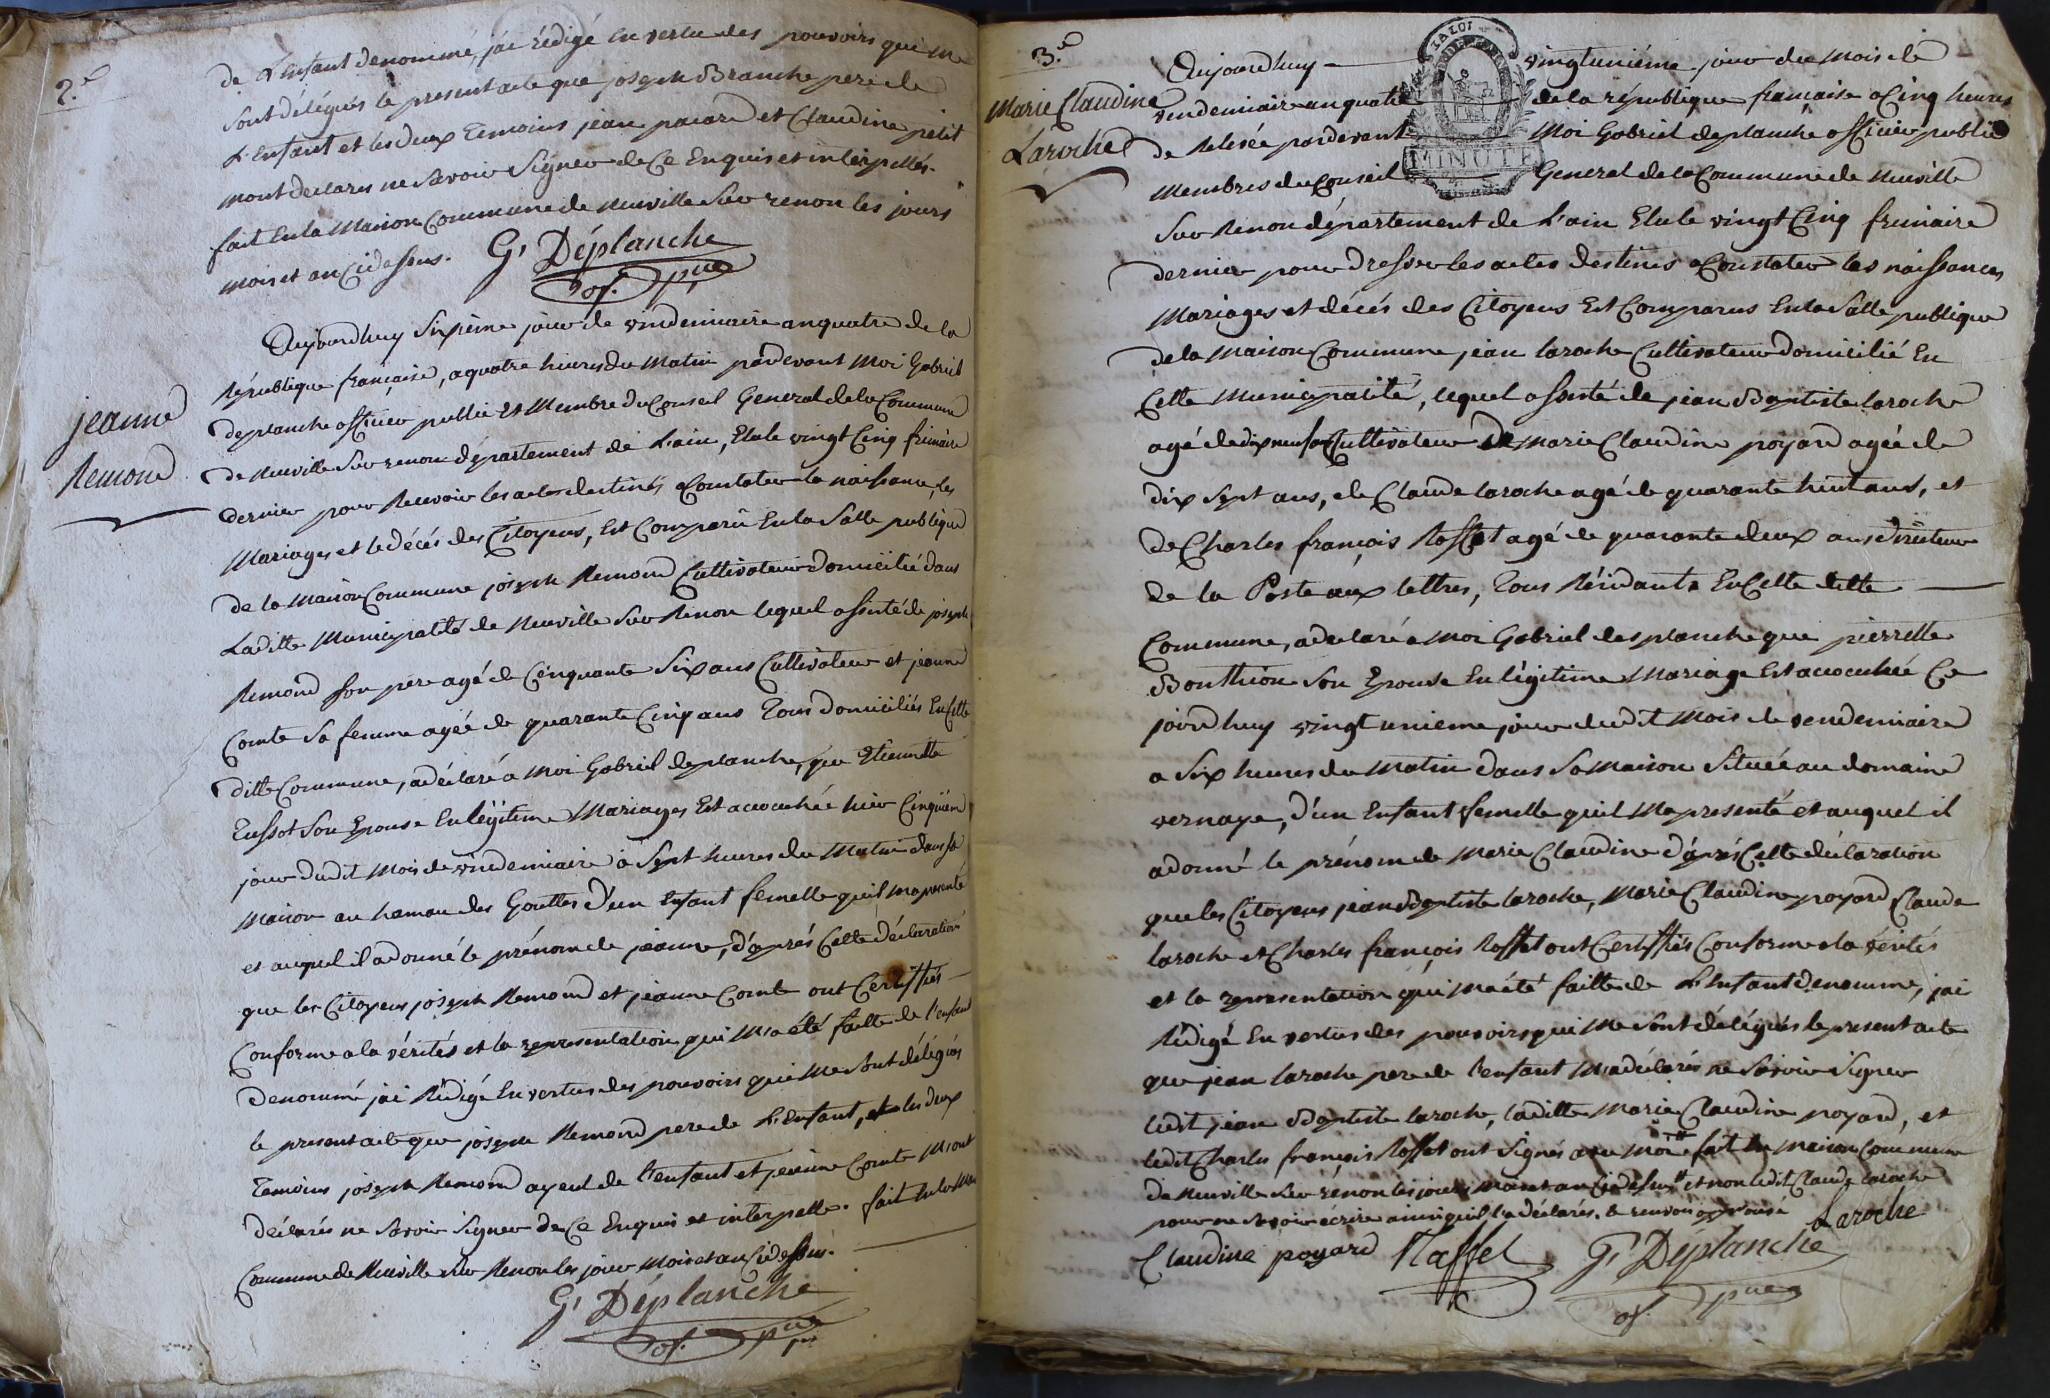 2.e
de L'Enfant denommé, jai rédigé en vertu des pouvoirs qui me
sont délégués le present acte que joseph Branche pere de
L'Enfant et les deux Temoins jean pacard et Claudine petit
mont declarés ne savoir signer de Ce Enquis et interpellés.
fait En la Maison Commune de neuville Sur renon les jours
mois et an Cidessus. G.l Déplanche
of. p.que
jeanne
Remond
Aujourdhuy Sixième jour de vendemiaire an quatre de la
République française, a quatre heures du Matin pardevant Moi Gabriel
deplanche officier public et Membre du Conseil General de la Commune
de Neuville Sur renon département de L'ain, Elu le vingt Cinq frimaire
dernier pour Recevoir les actes destinés a Constater la naissance, les
Mariages et le décés des Citoyens, Est Comparû En la Salle publique
de la Maison Commune joseph Remond Cultivateur domicilié dans
Laditte Municipalité de Neuville Sur Renon lequel assisté de joseph
Remond son pere agé de Cinquante Six ans Cultivateur et jeanne
Comte Sa femme agée de quarante Cinq ans Tous domiciliés En Cette
ditte Commune, a déclaré a Moi Gabriel deplanche, que Etiennette
Eussot Son Epouse En légitime Mariages Est accouchée hier Cinquiéme
jour dudit Mois de vindemiaire à Sept heures du Matin dans sa
Maison au hamau des Gouttes d'un Enfant femelle quil ma presenté
et auquel il a donné le prénom de jeanne, d'aprés Cette déclaration
que les Citoyens joseph Remond et jeanne Comte ont Certiffiés
Conforme a la vérités et la representation qui M'a été faitte de l'enfant
denommé jai Rédigé En vertus des pouvoirs qui Me Sont délégués
le present acte que joseph Remond pere de L'Enfant, et les deux
Temoins joseph Remond ayeul de l'enfant et jeanne Comte M'ont
déclarés ne Savoir Signer de Ce Enquis et interpellé. fait En la Mson
Commune de Neuville Sur Renon les jour Mois et an Cidessus.
G.l Déplanche
of. p.que
3.e
Marie Claudine
Laroche
LA LOI
MINUTE
Aujourdhuy vingtuniéme jour du Mois de
vendemiaire an quatre de la république française a Cinq heures
de Relevée pardevant Moi Gabriel deplanche officier public
Membres du Conseil General de la Commune de Neuville
Sur Renon département de L'ain Elu le vingt Cinq frimaire
dernier pour Dresser les actes destinés a Constater les naissances
Mariages et décés des Citoyens Est Comparus En la Salle publique
de la Maison Commune jean laroche Cultivateur domicilié En
Cette Municipalité, lequel assisté de jean Baptiste laroche
agé de dix neuf ans Cultivateur de Marie Claudine poyard agée de
dix Sept ans, de Claude laroche agé de quarante huit ans, et
de Charles françois Raffet agé de quarante deux ans directeur
de la Poste aux lettres, Tous Résidants En Cette ditte
Commune, a declaré a Moi Gabriel desplanche que pierrette
Bouthion Son Epouse En légitime Mariage Est accouchée Ce
jourdhuy vingt unieme jour dudit Mois de vendemiaire
a Six heures du Matin dans Sa Maison Située au domaine
vernaye, d'un Enfant femelle quil M'a presenté et auquel il
a donné le prénom de Marie Claudine d'aprés Cette déclaration
que les Citoyens jean Baptiste laroche, Marie Claudine poyard Claude
laroche et Charles françois Raffet ont Certiffiés Conforme a la vérités
et la representation qui ma été faitte de L'Enfant denommé, jai
Rédigé En vertus des pouvoirs qui Me Sont délégués le present acte
que jean laroche pere de l'enfant M'a déclarés ne Savoir Signer
ledit jean Baptiste laroche, laditte Marie Claudine poyard, et
ledit Charles françois Raffet ont Signés avec Moi # fait En Maison Commune
de Neuville Sur renon les jour Mois et an Cidessus # et non ledit Claude laroche
pour ne Savoir écrire ainsi quil la déclarés. le renvoi approuvé Laroche
Claudine poyard Raffet G.l Déplanche
of. p.que